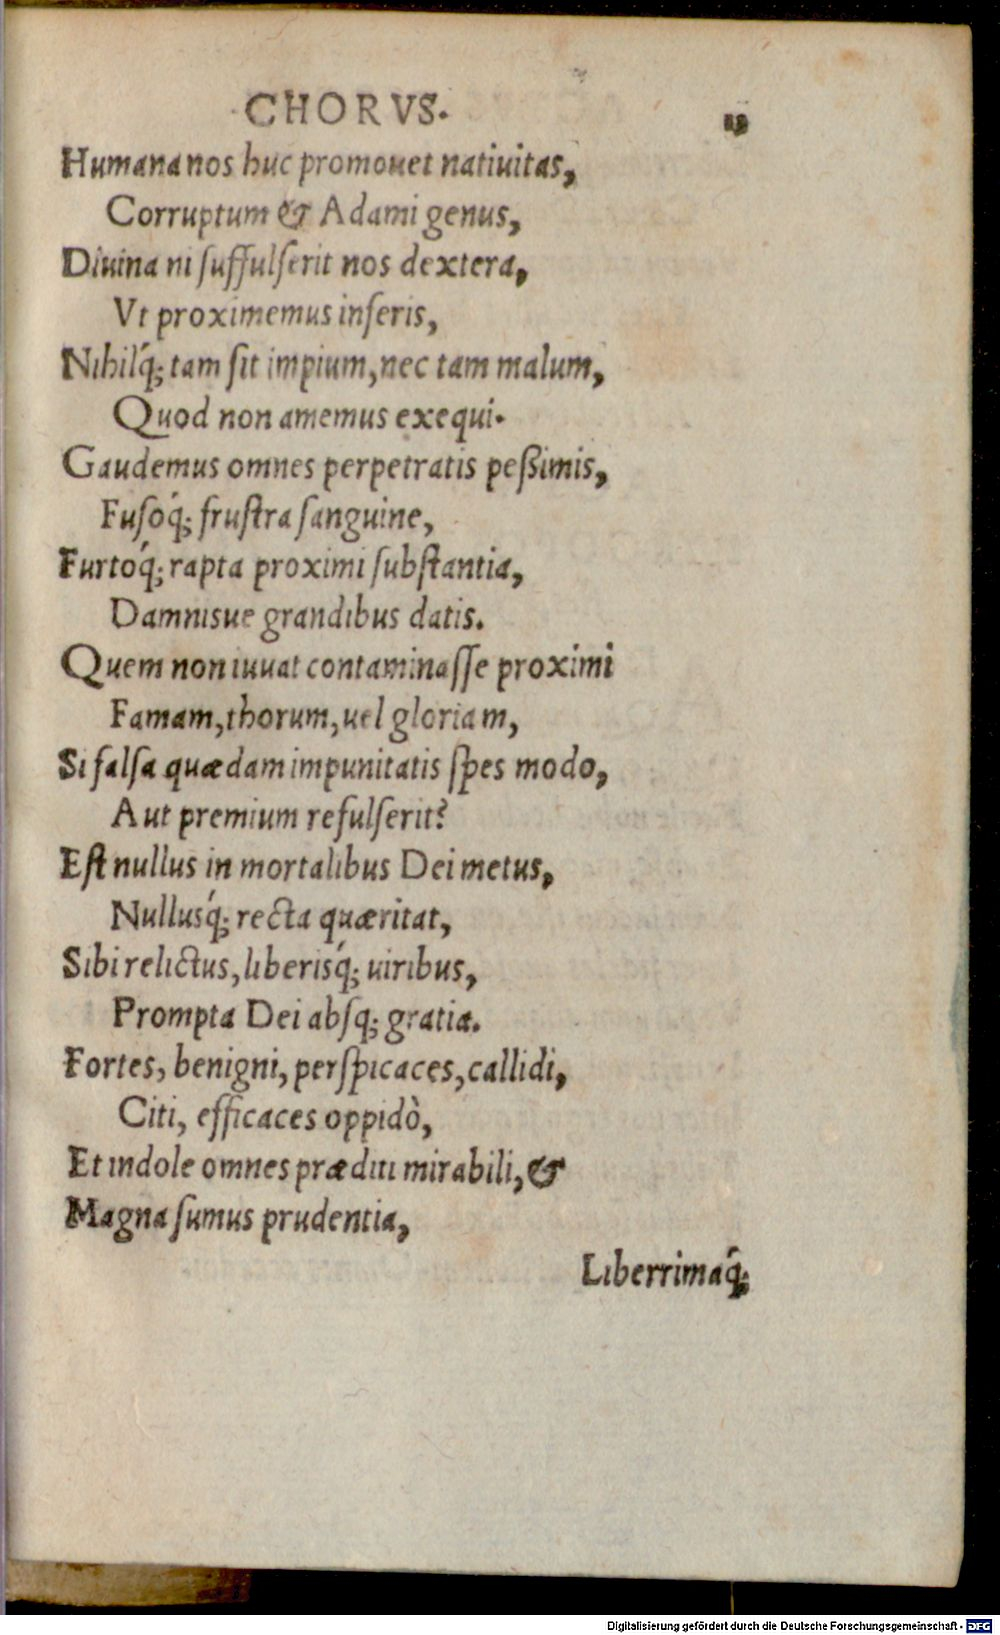 CHORVS.
19
Humana nos huc promouet natiuitas,
Corruptum & Adami genus,
Diuina ni ſuffulſerit nos dextera,
Vt proximemus inferis,
Nihilq́; tam ſit impium, nec tam malum,
Quod non amemus exequi.
Gaudemus omnes perpetratis peßimis,
Fuſoq́; fruſtra ſanguine,
Furtoq́; rapta proximi ſubſtantia,
Damnisue grandibus datis.
Quem non iuuat contaminaſſe proximi
Famam, thorum, uel gloriam,
Si falſa quædam impunitatis ſpes modo,
Aut premium refulſerit?
Eſt nullus in mortalibus Dei metus,
Nullusq́; recta quæritat,
Sibi relictus, liberisq́; uiribus,
Prompta Dei absq; gratia.
Fortes, benigni, perſpicaces, callidi,
Citi, efficaces oppidò,
Et indole omnes præditi mirabili, &
Magna ſumus prudentia,
Liberrimaq́;
Digitalisierung gefördert durch die Deutsche Forschungsgemeinschaft - DFG